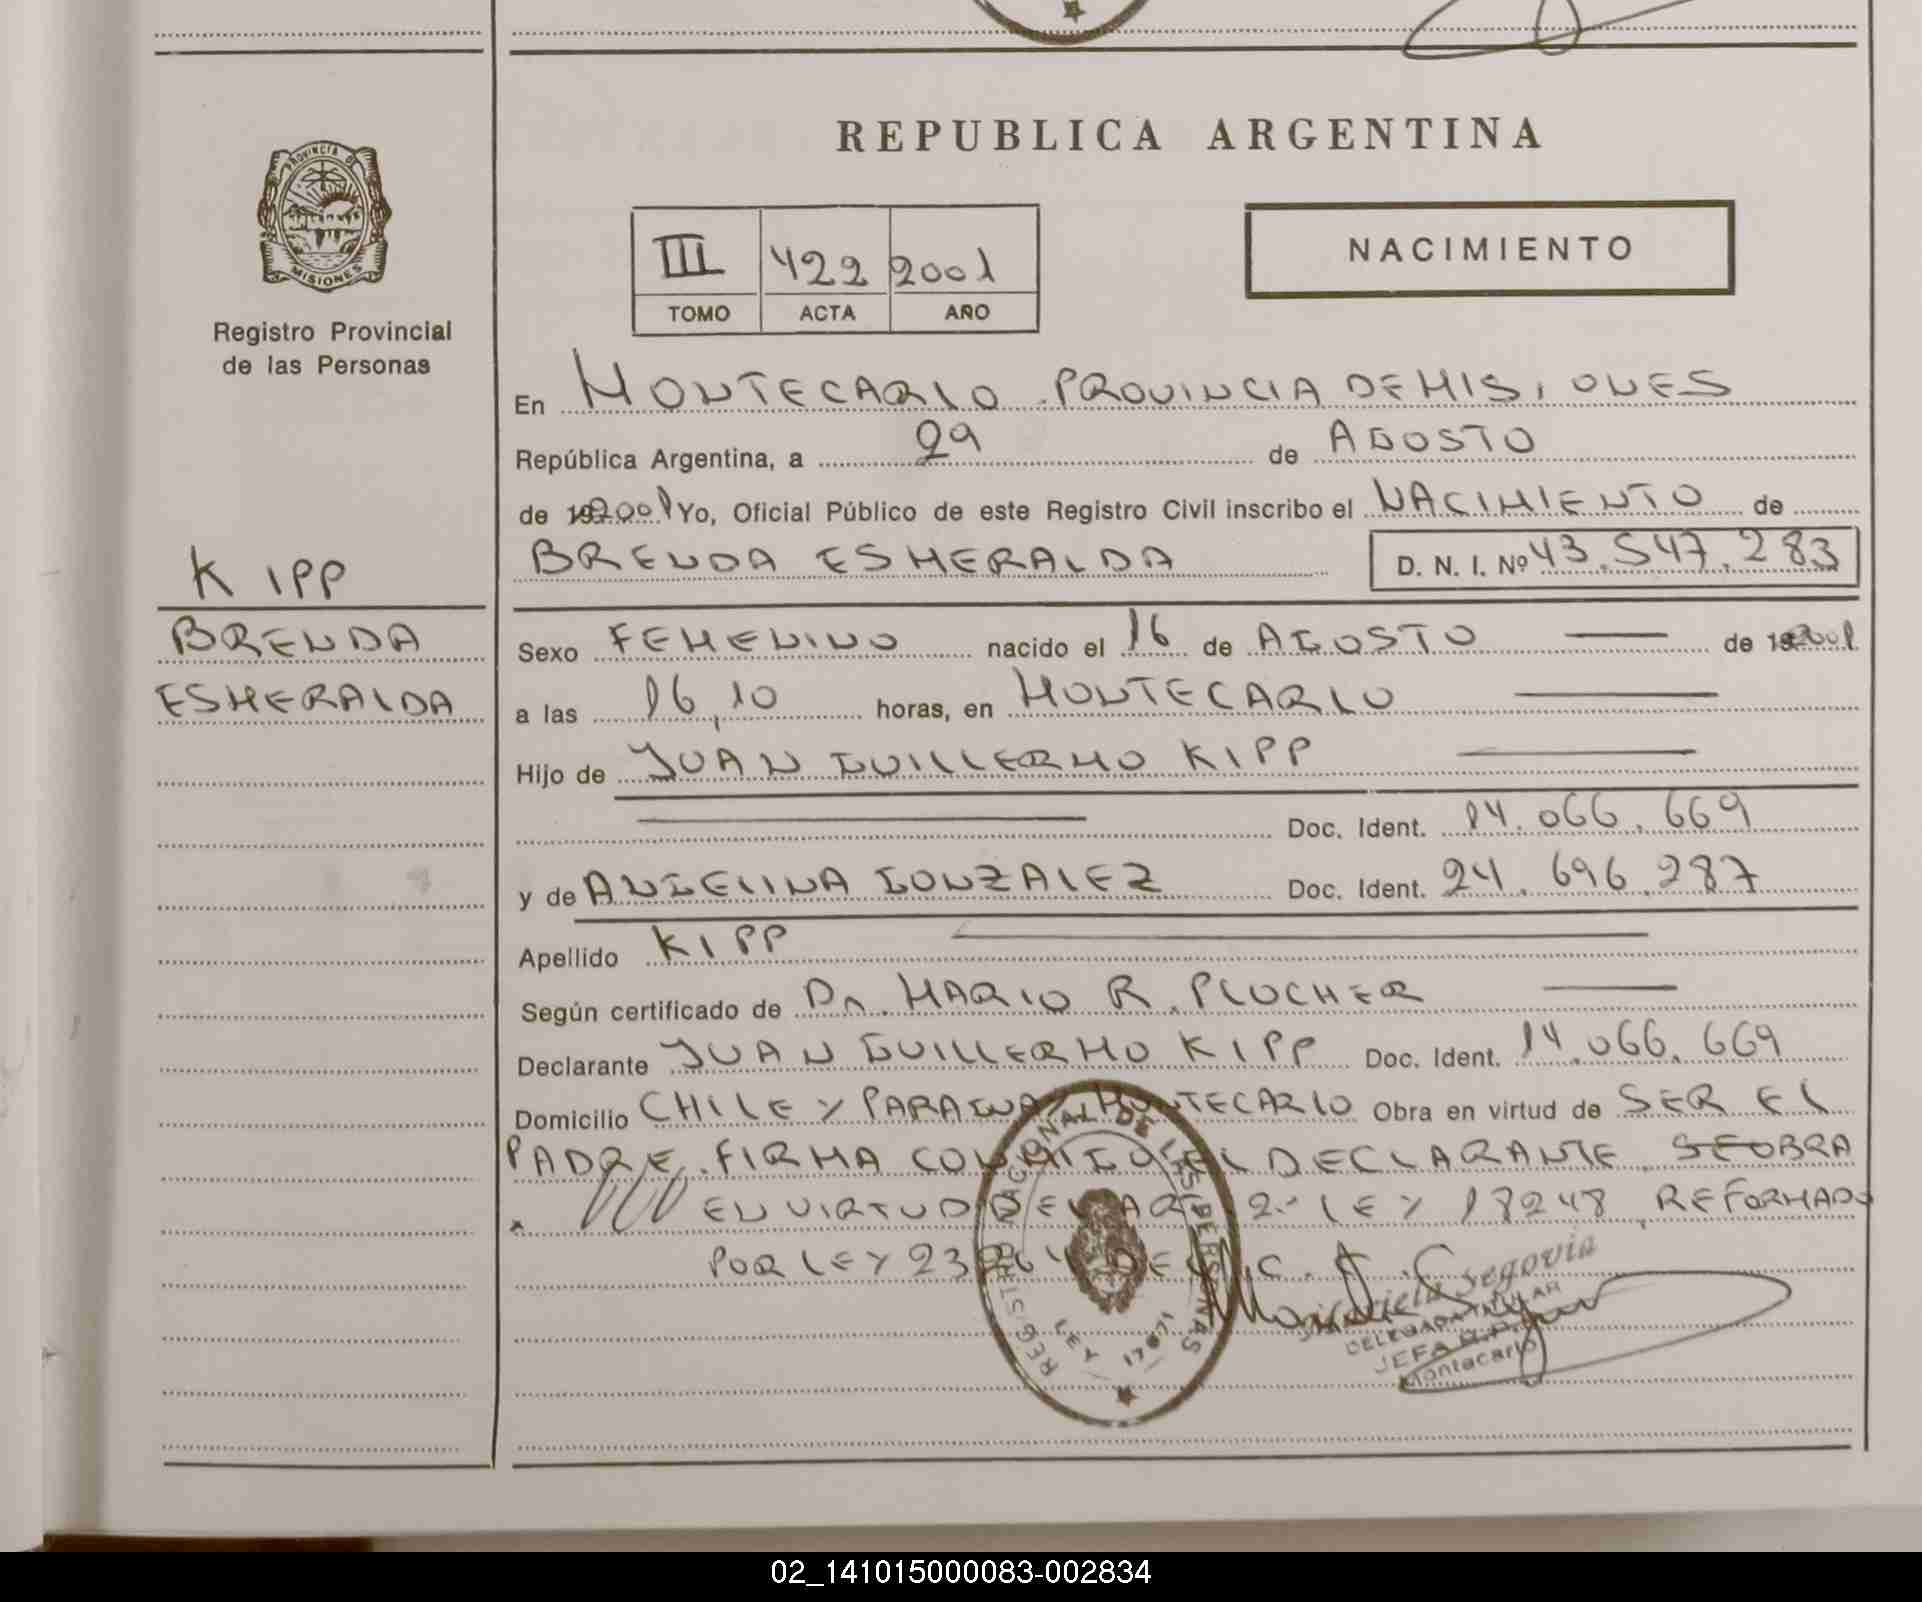 REPUBLICA ARGENTINA
PROVINCIA DE
MISIONES
Registro Provincial
de las Personas
III 422 2001
TOMO ACTA AÑO
NACIMIENTO
En MONTECARLO . PROVINCIA DE MISIONES
República Argentina, a 29 de AGOSTO
de 192001 Yo, Oficial Público de este Registro Civil inscribo el NACIMIENTO de
BRENDA ESMERALDA D. N. I. Nº 43.547.283
KIPP
BRENDA
ESMERALDA
Sexo FEMENINO nacido el 16 de AGOSTO de 192001
a las 16,10 horas, en MONTECARLO
Hijo de JUAN GUILLERMO KIPP
Doc. Ident. 14.066.669
y de ANGELINA GONZALEZ Doc. Ident. 24.696.287
Apellido KIPP
Según certificado de Dr. MARIO R. PLOCHER
Declarante JUAN GUILLERMO KIPP Doc. Ident. 14.066.669
Domicilio CHILE Y PARAGUAY MONTECARLO Obra en virtud de SER EL
PADRE. FIRMA CONMIGO EL DECLARANTE. SE OBRA
EN VIRTUD DEL ART 2º LEY 18248, REFORMADO
POR LEY 23264 DE C.
REGISTRO NACIONAL DE LAS PERSONAS
LEY 17671
Segovia
DELEGADA TITULAR
JEFA R.P.P.
Montecarlo
02_141015000083-002834